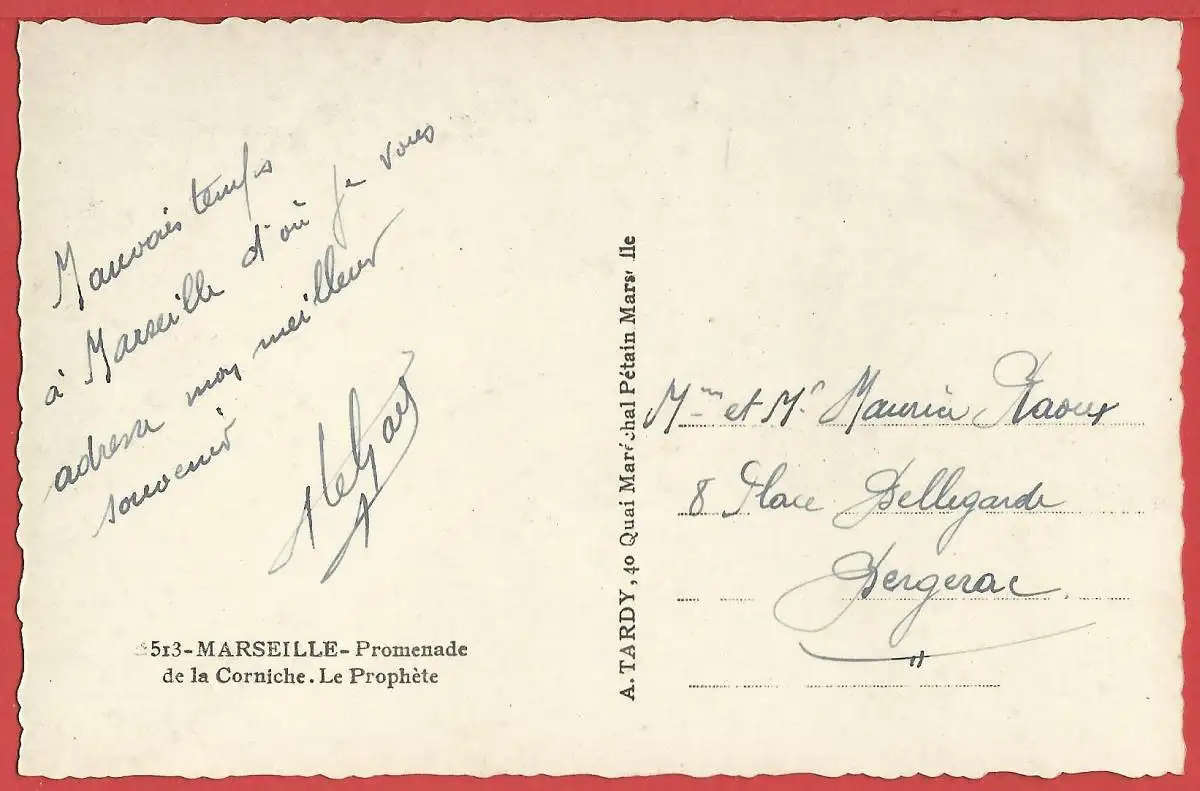 Mauvais temps
à Marseille d'où je vous
adresse mon meilleur
souvenir
513-MARSEILLE-Promenade
de la Corniche. Le Prophète
A. TARDY, 40 Quai Maréchal Pétain Marseille
Mme et Mr Maurice Raoux
8 Place Bellegarde
Bergerac.